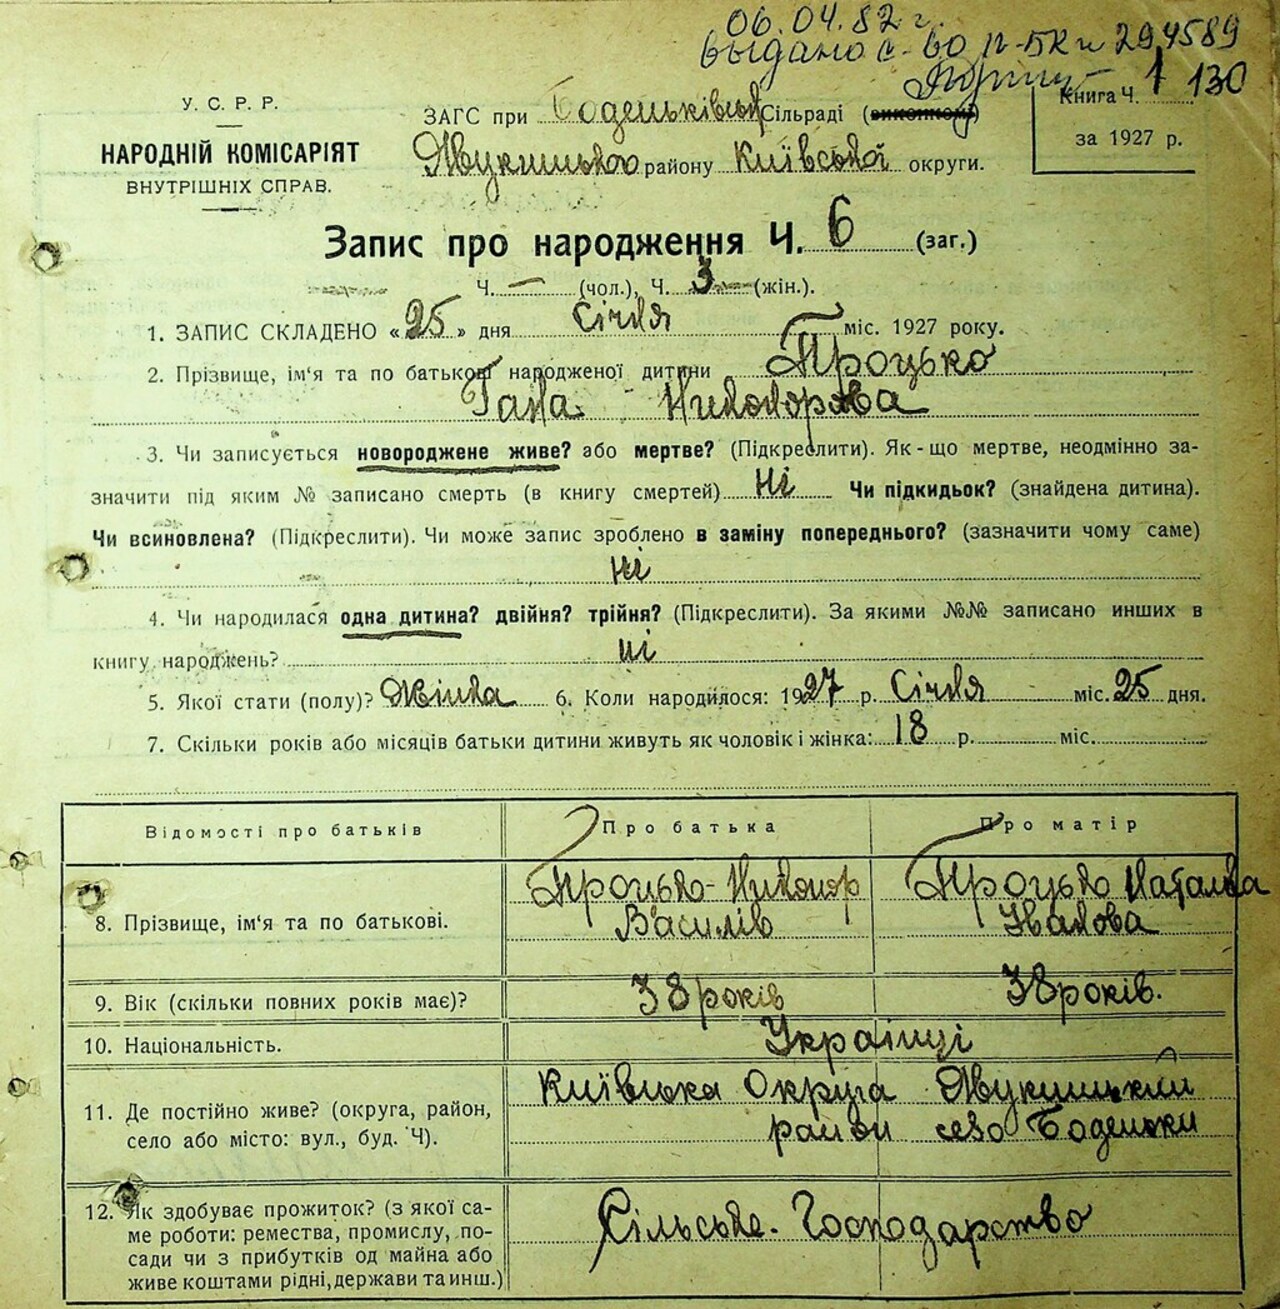 06.04.82 г.
выдано с-во II-БК № 294589
130
У. С. Р. Р.
НАРОДНІЙ КОМІСАРІЯТ
ВНУТРІШНІХ СПРАВ.
ЗАГС при Боденьківській Сільраді (виконкомі)
району Київської округи.
Книга Ч. 1
за 1927 р.
Запис про народження Ч. 6 (заг.)
Ч. — (чол.), Ч. 3 (жін.).
1. ЗАПИС СКЛАДЕНО «25» дня Січня міс. 1927 року.
2. Прізвище, ім'я та по батькові народженої дитини Троцько
Гана Никонорова
3. Чи записується новороджене живе? або мертве? (Підкреслити). Як-що мертве, неодмінно за-
значити під яким № записано смерть (в книгу смертей) Ні Чи підкидьок? (знайдена дитина).
Чи всиновлена? (Підкреслити). Чи може запис зроблено в заміну попереднього? (зазначити чому саме)
ні
4. Чи народилася одна дитина? двійня? трійня? (Підкреслити). За якими №№ записано инших в
книгу народжень? ні
5. Якої стати (полу)? Жінка 6. Коли народилося: 1927 р. Січня міс. 25 дня.
7. Скільки років або місяців батьки дитини живуть як чоловік і жінка: 18 р. міс.
Відомості про батьків
Про батька
Про матір
8. Прізвище, ім'я та по батькові.
Троцько Никонор
Василів
Троцько Наталка
Іванова
9. Вік (скільки повних років має)?
38 років
38 років.
10. Національність.
Українці
11. Де постійно живе? (округа, район,
село або місто: вул., буд. Ч).
Київська Округа
район село Боденьки
12. Як здобуває прожиток? (з якої са-
ме роботи: ремества, промислу, по-
сади чи з прибутків од майна або
живе коштами рідні, держави та инш.)
Сільське-Господарство